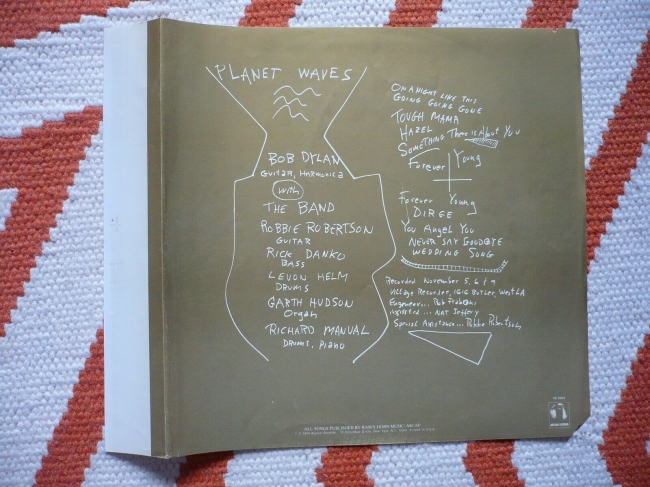 PLANET WAVES
BOB DYLAN
GUITAR, HARMONICA
with
THE BAND
ROBBIE ROBERTSON
GUITAR
RICK DANKO
BASS
LEVON HELM
DRUMS
GARTH HUDSON
Organ
RICHARD MANUAL
DRUMS, PIANO
ON A NIGHT LIKE THIS
GOING GOING GONE
TOUGH MAMA
HAZEL
SOMETHING There is About You
Forever Young
Forever Young
DIRGE
You Angel You
NEVER SAY GOODBYE
WEDDING SONG
Recorded November 5, 6 + 9
Village Recorder, 1616 Butler, West LA
Engineer... Rob Fraboni
Assisted... NAT Jeffery
Special Assistance... Robbie Robertson
ALL SONGS PUBLISHED BY RAM'S HORN MUSIC, ASCAP